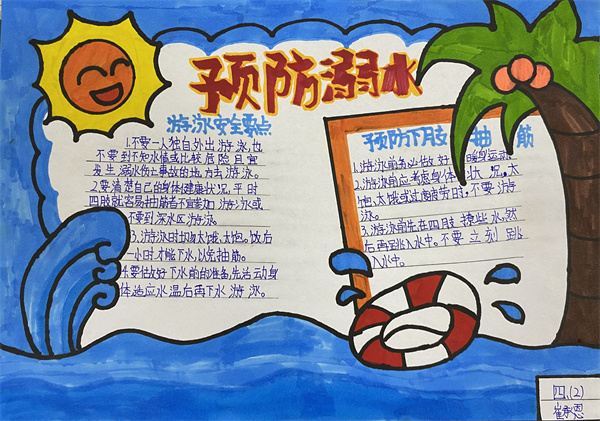 预防溺水
游泳安全要点
1.不要一人独自外出游泳,也
不要到不知水情或比较危险且宜
发生溺水伤亡事故的地方去游泳。
2.要清楚自己的身体健康状况,平时
四肢就容易抽筋者不宜参加游泳或
不要到深水区游泳。
3.游泳时切勿太饿、太饱。饭后
一小时才能下水,以免抽筋。
4.要做好下水前的准备,先活动身
体适应水温后再下水游泳。
预防下肢抽筋
1.游泳前务必做好暖身运动
2.游泳前应考虑身体状况,太
饱、太饿或过度疲劳时,不要游
泳。
3.游泳前先在四肢撩些水,然
后再跳入水中。不要立刻跳
入水中。
四.(2)